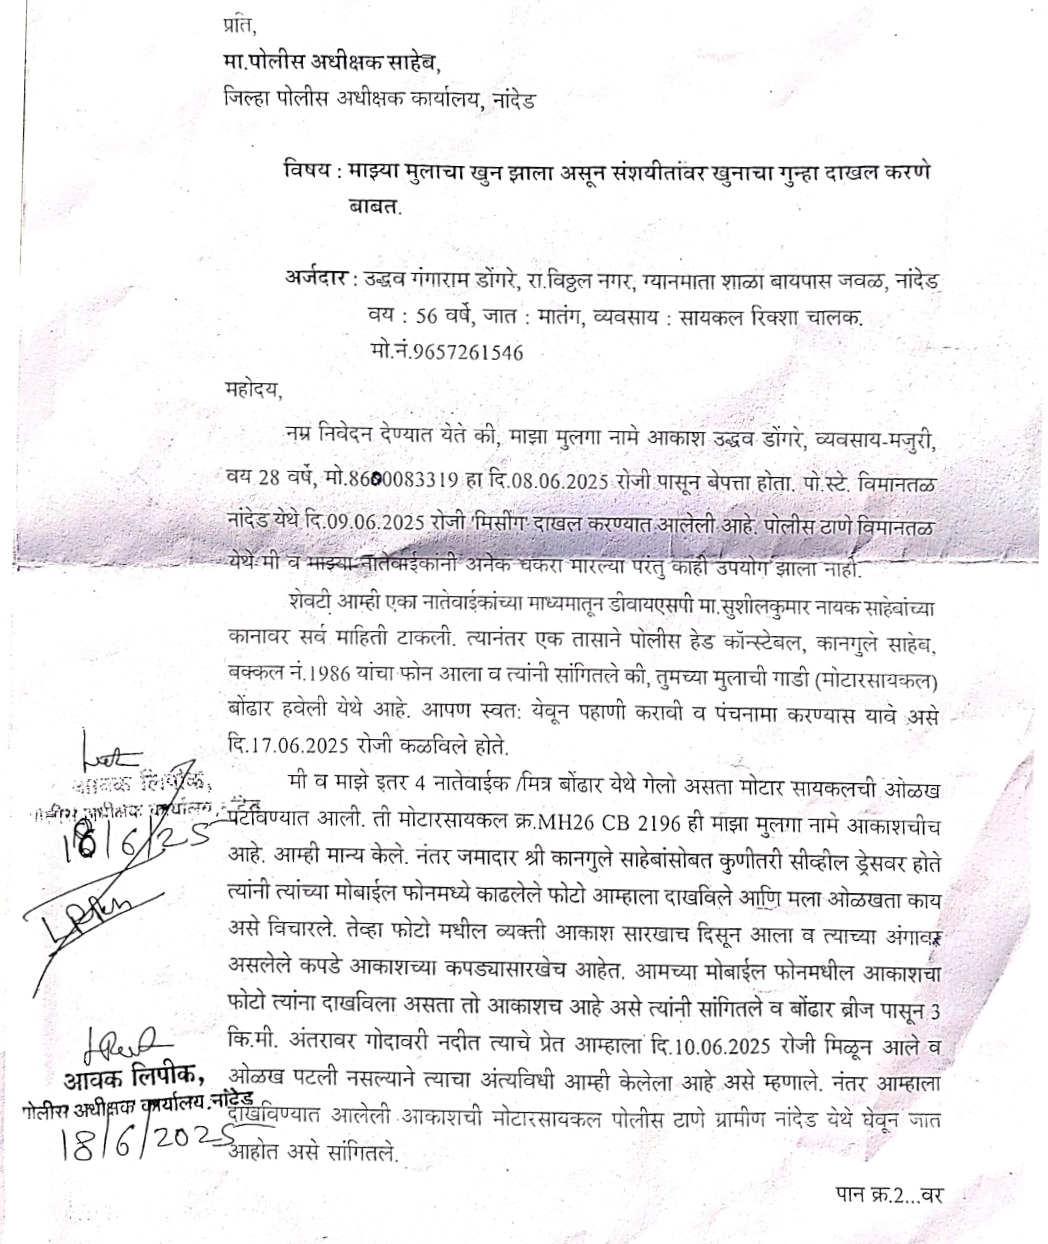 प्रति,
मा.पोलीस अधीक्षक साहेब,
जिल्हा पोलीस अधीक्षक कार्यालय, नांदेड
विषय : माझ्या मुलाचा खुन झाला असून संशयीतांवर खुनाचा गुन्हा दाखल करणे
बाबत.
अर्जदार : उद्धव गंगाराम डोंगरे, रा.विठ्ठल नगर, ग्यानमाता शाळा बायपास जवळ, नांदेड
वय : 56 वर्षे, जात : मातंग, व्यवसाय : सायकल रिक्शा चालक.
मो.नं.9657261546
महोदय,
नम्र निवेदन देण्यात येते की, माझा मुलगा नामे आकाश उद्धव डोंगरे, व्यवसाय-मजुरी,
वय 28 वर्षे, मो.8600083319 हा दि.08.06.2025 रोजी पासून बेपत्ता होता. पो.स्टे. विमानतळ
नांदेड येथे दि.09.06.2025 रोजी 'मिसींग' दाखल करण्यात आलेली आहे. पोलीस ठाणे विमानतळ
येथे मी व माझ्या नातेवाईकांनी अनेक चकरा मारल्या परंतु काही उपयोग झाला नाही.
शेवटी आम्ही एका नातेवाईकांच्या माध्यमातून डीवायएसपी मा.सुशीलकुमार नायक साहेबांच्या
कानावर सर्व माहिती टाकली. त्यानंतर एक तासाने पोलीस हेड कॉन्स्टेबल, कानगुले साहेब,
बक्कल नं.1986 यांचा फोन आला व त्यांनी सांगितले की, तुमच्या मुलाची गाडी (मोटारसायकल)
बोंढार हवेली येथे आहे. आपण स्वत: येवून पहाणी करावी व पंचनामा करण्यास यावे असे
दि.17.06.2025 रोजी कळविले होते.
मी व माझे इतर 4 नातेवाईक /मित्र बोंढार येथे गेलो असता मोटार सायकलची ओळख
पटविण्यात आली. ती मोटारसायकल क्र.MH26 CB 2196 ही माझा मुलगा नामे आकाशचीच
आहे. आम्ही मान्य केले. नंतर जमादार श्री कानगुले साहेबांसोबत कुणीतरी सीव्हील ड्रेसवर होते
त्यांनी त्यांच्या मोबाईल फोनमध्ये काढलेले फोटो आम्हाला दाखविले आणि मला ओळखता काय
असे विचारले. तेव्हा फोटो मधील व्यक्ती आकाश सारखाच दिसून आला व त्याच्या अंगावर
असलेले कपडे आकाशच्या कपड्यासारखेच आहेत. आमच्या मोबाईल फोनमधील आकाशचा
फोटो त्यांना दाखविला असता तो आकाशच आहे असे त्यांनी सांगितले व बोंढार ब्रीज पासून 3
कि.मी. अंतरावर गोदावरी नदीत त्याचे प्रेत आम्हाला दि.10.06.2025 रोजी मिळून आले व
ओळख पटली नसल्याने त्याचा अंत्यविधी आम्ही केलेला आहे असे म्हणाले. नंतर आम्हाला
दाखविण्यात आलेली आकाशची मोटारसायकल पोलीस ठाणे ग्रामीण नांदेड येथे घेवून जात
आहोत असे सांगितले.
पान क्र.2...वर
आवक लिपीक,
पोलीस अधीक्षक कार्यालय, नांदेड
18/6/25
आवक लिपीक,
पोलीस अधीक्षक कार्यालय.नांदेड
18/6/2025